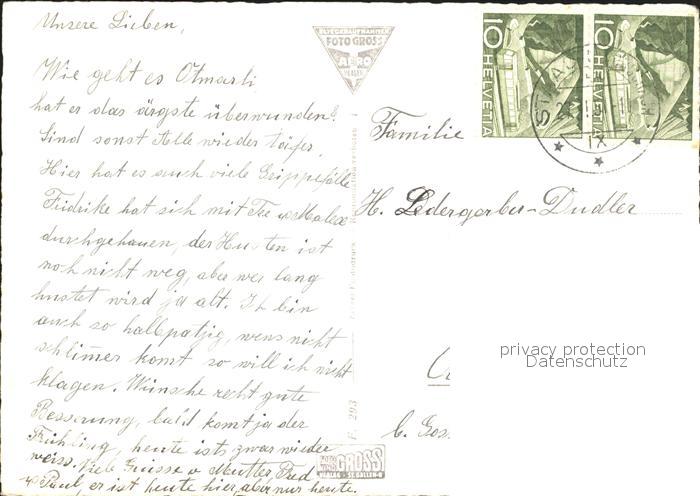 Unsere Lieben,
Wie geht es Otmarli
hat er das ärgste überwunden?
Sind sonst Alle wieder täfer,
Hier hat es auch viele Grippefälle
Fridrike hat sich mit Tee
durchgehauen, der Husten ist
noch nicht weg, aber wer lang
hustet wird ja alt. Ich bin
auch so halbpatzig, wens nicht
schlimer komt so will ich nicht
klagen. Wünsche recht gute
Besserung, bald komt ja der
Frühling, heute ists zwar wieder
weiss. Viele Grüsse v. Mutter, Fred
u. Paul, er ist heute hier, aber nur heute.
FOTO GROSS
AERO
F. 293
GROSS
ST. GALLEN
10 HELVETIA
10 HELVETIA
IX
Familie
H. Ledergerber-Dudler
privacy protection
Datenschutz
b. Goss